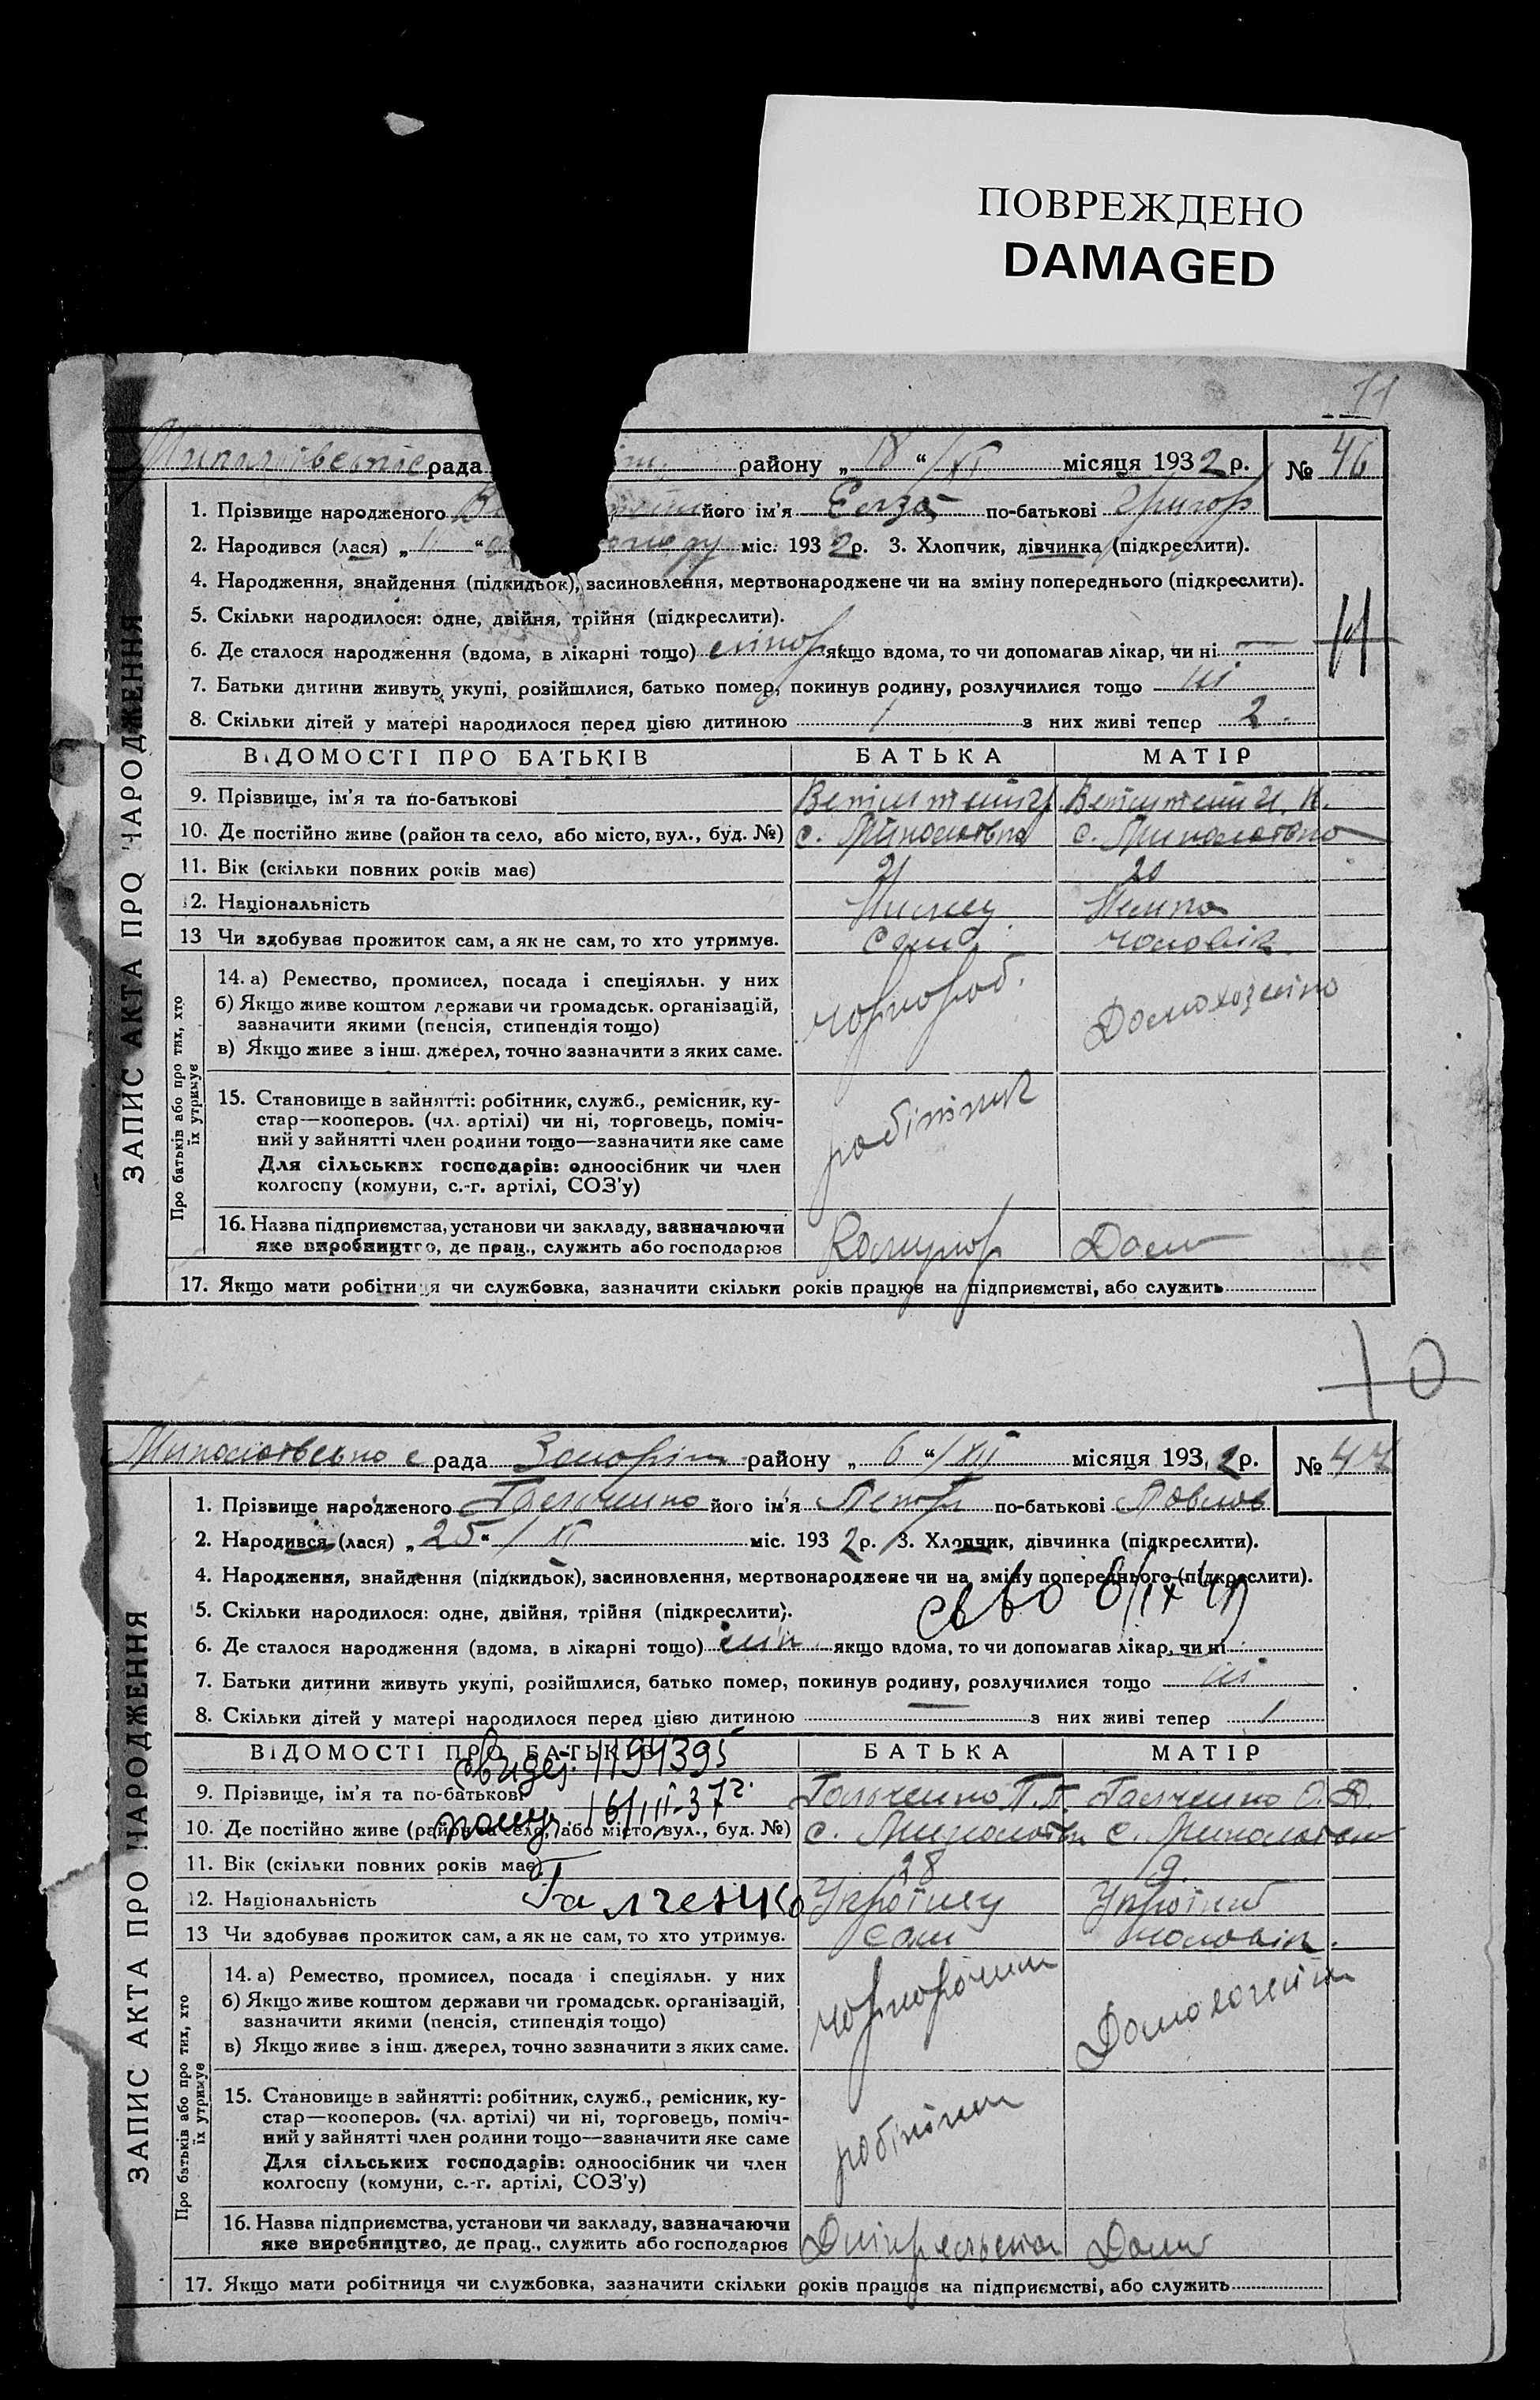 ПОВРЕЖДЕНО
DAMAGED
11
рада району „ 18 “ / XI місяця 1932 р. № 46
1. Прізвище народженого його ім'я Елза по-батькові Григор
2. Народився (лася) „ “ міс. 1932 р. 3. Хлопчик, дівчинка (підкреслити).
4. Народження, знайдення (підкидьок), засиновлення, мертвонароджене чи на зміну попереднього (підкреслити).
5. Скільки народилося: одне, двійня, трійня (підкреслити).
6. Де сталося народження (вдома, в лікарні тощо) якщо вдома, то чи допомагав лікар, чи ні —
7. Батьки дитини живуть укупі, розійшлися, батько помер, покинув родину, розлучилися тощо ні
8. Скільки дітей у матері народилося перед цією дитиною 1 з них живі тепер 2
ВІДОМОСТІ ПРО БАТЬКІВ БАТЬКА МАТІР
9. Прізвище, ім'я та по-батькові
10. Де постійно живе (район та село, або місто, вул., буд. №) с. с.
11. Вік (скільки повних років має) 21 20
12. Національність Німец Немка
13 Чи здобуває прожиток сам, а як не сам, то хто утримує. Сам чоловік
Про батьків або про тих, хто їх утримує
14. а) Ремество, промисел, посада і спеціяльн. у них
б) Якщо живе коштом держави чи громадськ. організацій,
зазначити якими (пенсія, стипендія тощо)
в) Якщо живе з інш. джерел, точно зазначити з яких саме.
чорнороб. Домохозяйка
15. Становище в зайнятті: робітник, служб., ремісник, ку-
стар—кооперов. (чл. артілі) чи ні, торговець, поміч-
ний у зайнятті член родини тощо—зазначити яке саме
Для сільських господарів: одноосібник чи член
колгоспу (комуни, с.-г. артілі, СОЗ'у)
робітник
16. Назва підприємства, установи чи закладу, зазначаючи
яке виробництво, де прац., служить або господарює
Дом
17. Якщо мати робітниця чи службовка, зазначити скільки років працює на підприємстві, або служить
ЗАПИС АКТА ПРО НАРОДЖЕННЯ
0
рада Запоріж району „ 6 “ / XII місяця 1932 р. № 47
1. Прізвище народженого Гальченко його ім'я Петр по-батькові Павлов
2. Народився (лася) „ 25 “ / XI міс. 1932 р. 3. Хлопчик, дівчинка (підкреслити).
4. Народження, знайдення (підкидьок), засиновлення, мертвонароджене чи на зміну попереднього (підкреслити).
5. Скільки народилося: одне, двійня, трійня (підкреслити).
6. Де сталося народження (вдома, в лікарні тощо) якщо вдома, то чи допомагав лікар, чи ні
7. Батьки дитини живуть укупі, розійшлися, батько помер, покинув родину, розлучилися тощо ні
8. Скільки дітей у матері народилося перед цією дитиною — з них живі тепер 1
ВІДОМОСТІ ПРО БАТЬКІВ БАТЬКА МАТІР
свидет. 1194395
9. Прізвище, ім'я та по-батькові Гальченко П.П. Галченко О.Д.
16/III-37 г.
10. Де постійно живе (район та село, або місто, вул., буд. №) с. с.
11. Вік (скільки повних років має) 28 19
Галченко
12. Національність Українец Українка
13 Чи здобуває прожиток сам, а як не сам, то хто утримує. Сам чоловік.
Про батьків або про тих, хто їх утримує
14. а) Ремество, промисел, посада і спеціяльн. у них
б) Якщо живе коштом держави чи громадськ. організацій,
зазначити якими (пенсія, стипендія тощо)
в) Якщо живе з інш. джерел, точно зазначити з яких саме.
15. Становище в зайнятті: робітник, служб., ремісник, ку-
стар—кооперов. (чл. артілі) чи ні, торговець, поміч-
ний у зайнятті член родини тощо—зазначити яке саме
Для сільських господарів: одноосібник чи член
колгоспу (комуни, с.-г. артілі, СОЗ'у)
робітник
16. Назва підприємства, установи чи закладу, зазначаючи
яке виробництво, де прац., служить або господарює
Дом
17. Якщо мати робітниця чи службовка, зазначити скільки років працює на підприємстві, або служить
ЗАПИС АКТА ПРО НАРОДЖЕННЯ